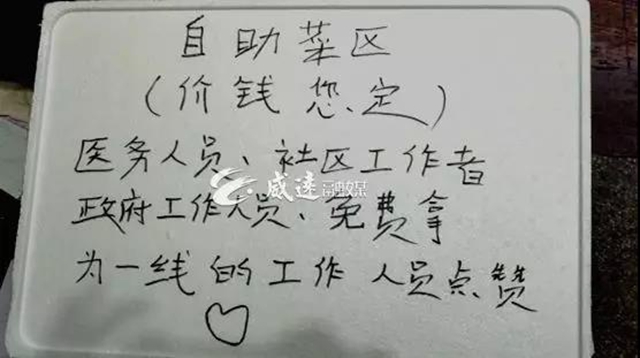 自助菜区
(价钱您定)
医务人员、社区工作者
威远融媒
政府工作人员、免费拿
为一线的工作人员点赞